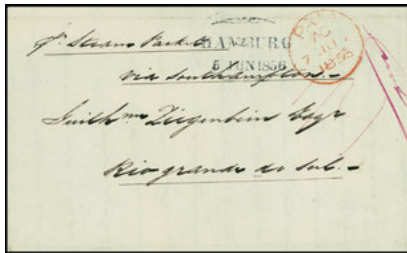 pr Steam Packet
HAMBURG
5 JUN 1856
PAID
7 JU
1856
via Southampton.-
Guilhme Ziegenbein Esqr
Rio grande do Sul.-